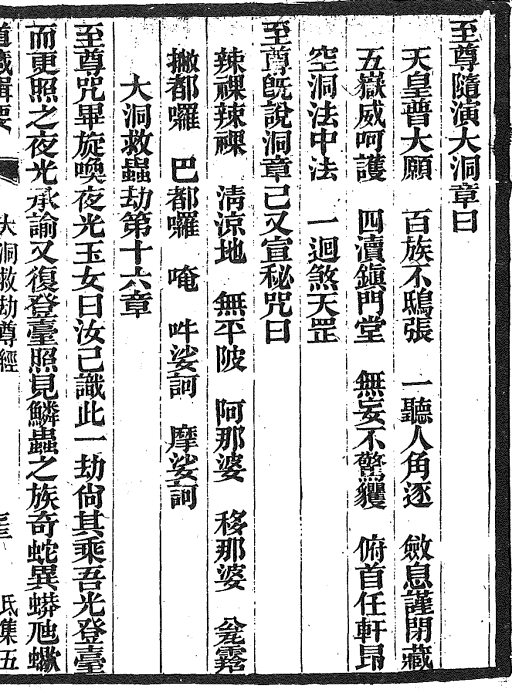 至尊隨演大洞章曰
天皇普大願　百族不鴟張　一聽人角逐　斂息謹閉藏
五嶽威呵護　四瀆鎮門堂　無妄不驚玃　俯首任軒昂
空洞法中法　一迴煞天罡
至尊旣說洞章已又宣秘咒曰
辣祼辣祼　淸涼地　無平陂　阿那婆　移那婆　瓮露
撇都囉　巴都囉　唵　吽娑訶　摩娑訶
大洞救蟲劫第十六章
至尊咒畢旋喚夜光玉女曰汝已識此一劫尙其乘吾光登臺
而更照之夜光承諭又復登臺照見鱗蟲之族奇蛇異蟒虺蠍
道藏輯要
大洞救劫尊經
氐集五